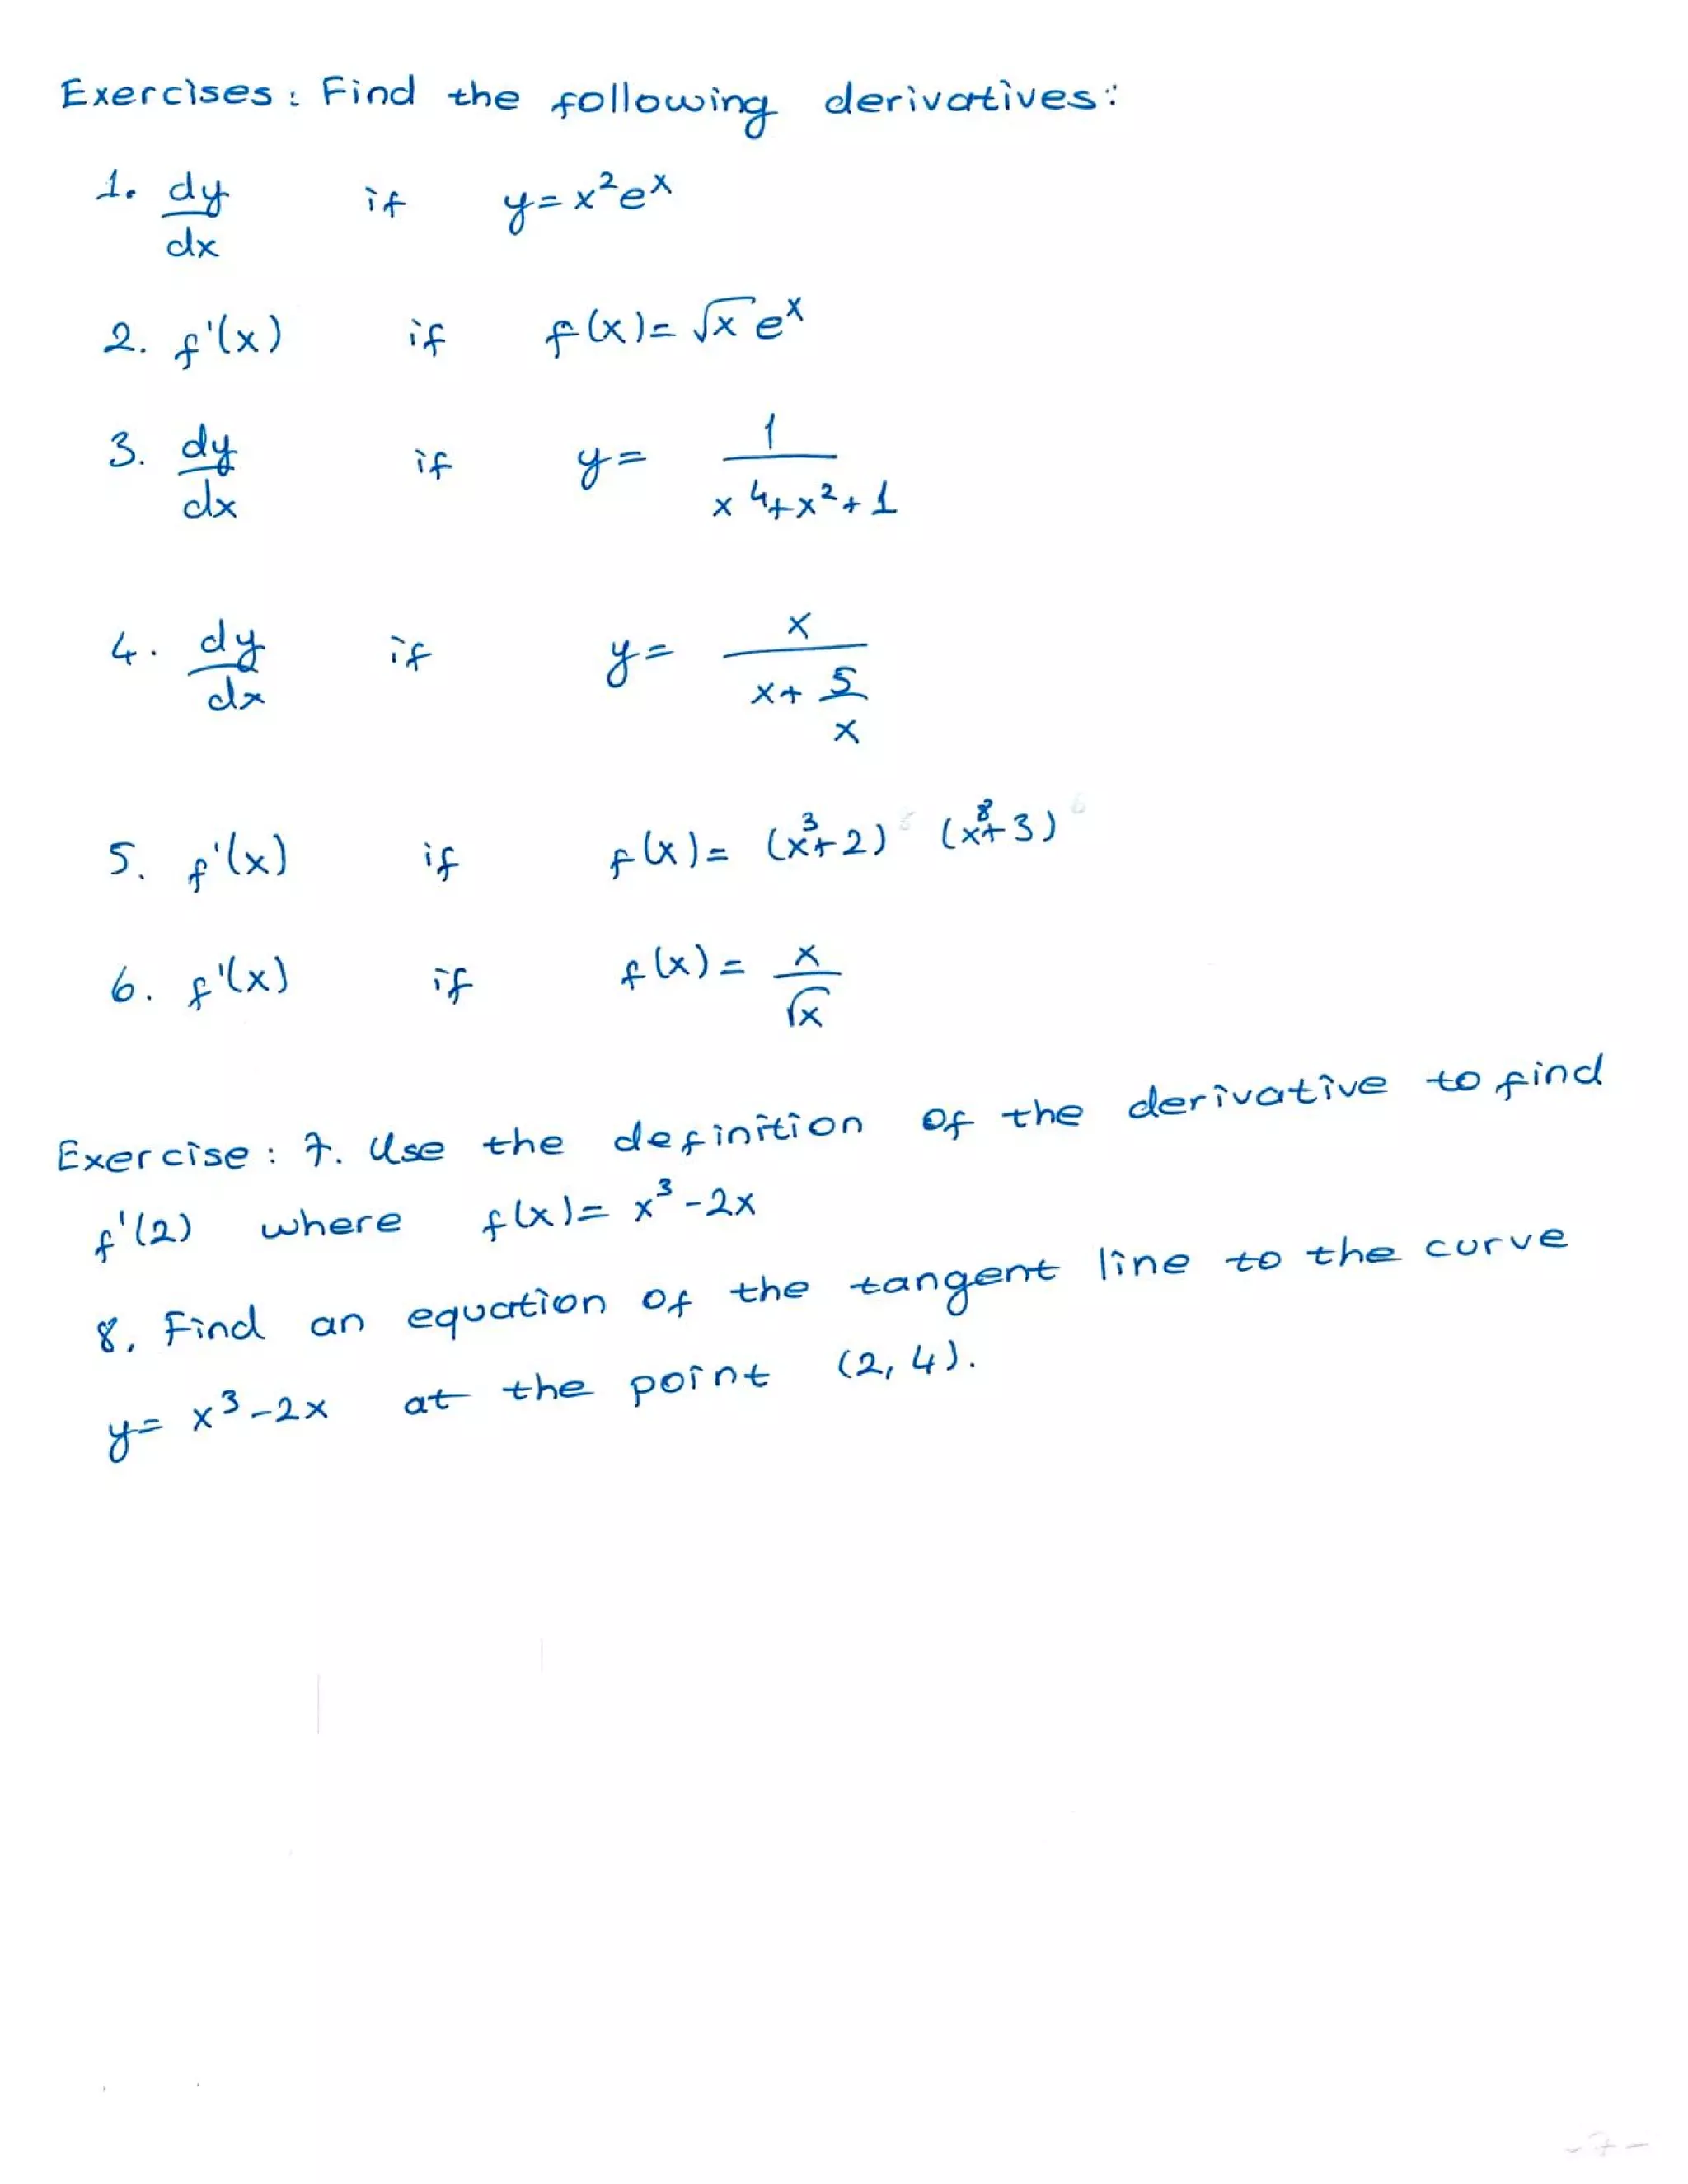 Exercises: Find the following derivatives:
1. dy/dx if y = x²eˣ
2. f'(x) if f(x) = √x eˣ
3. dy/dx if y = 1/(x⁴+x²+1)
4. dy/dx if y = x/(x+5/x)
5. f'(x) if f(x) = (x³+2) (x⁸+3)
6. f'(x) if f(x) = x/√x
Exercise: 7. Use the definition of the derivative to find
f'(2) where f(x) = x³-2x
8. Find an equation of the tangent line to the curve
y = x³-2x at the point (2, 4).
-7-